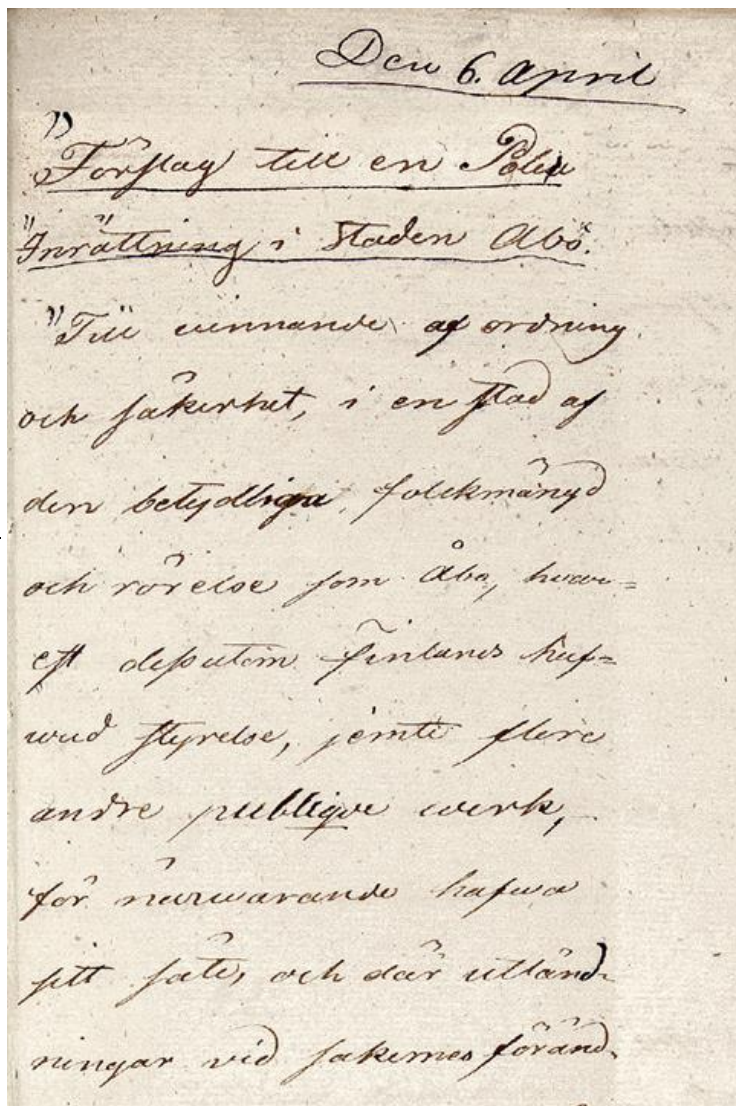 Den 6. April
"Förslag till en Polis
"Inrättning i Staden Åbo.
"Till winnande af ordning
och säkerhet, i en stad af
den betydliga folckmängd
och rörelse som Åbo, hwar=
est dessutom Finlands huf=
wud styrelse, jemte flere
andre publique werk,
för närwarande hafwa
sitt säte, och där utländ-
ningar vid sakernes föränd-